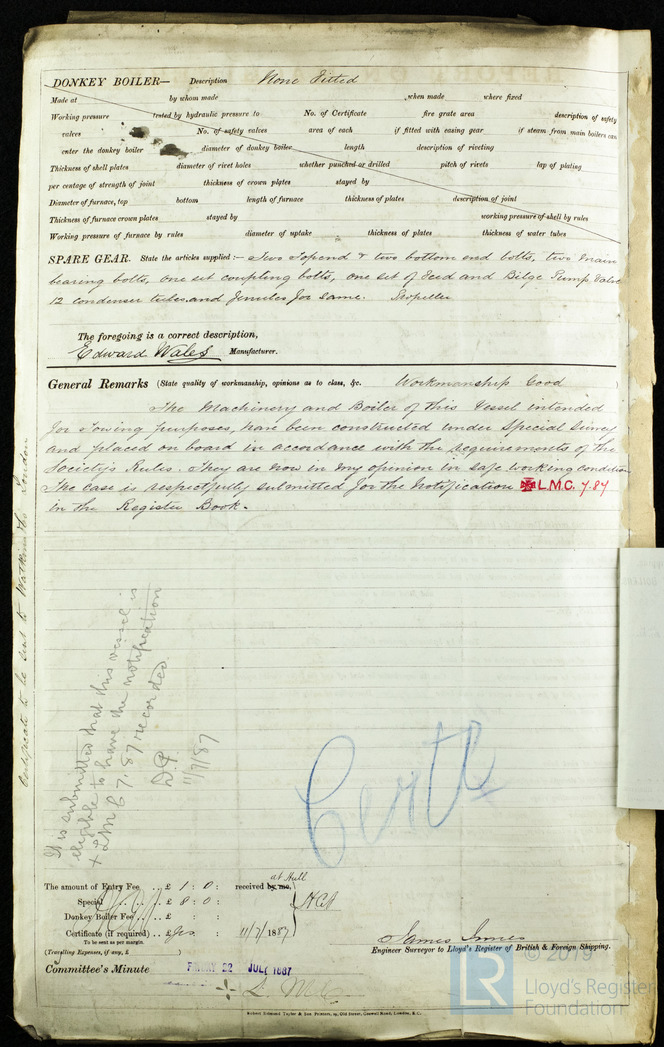 DONKEY BOILER— Description None Fitted
Made at by whom made when made where fixed
Working pressure tested by hydraulic pressure to No. of Certificate fire grate area description of safety
valves No. of safety valves area of each if fitted with easing gear if steam from main boilers can
enter the donkey boiler diameter of donkey boiler length description of riveting
Thickness of shell plates diameter of rivet holes whether punched or drilled pitch of rivets lap of plating
per centage of strength of joint thickness of crown plates stayed by
Diameter of furnace, top bottom length of furnace thickness of plates description of joint
Thickness of furnace crown plates stayed by working pressure of shell by rules
Working pressure of furnace by rules diameter of uptake thickness of plates thickness of water tubes
SPARE GEAR. State the articles supplied:— Two Top end & two bottom end bolts, two main
bearing bolts, one set coupling bolts, one set of Feed and Bilge Pump Valves
12 condenser tubes and ferrules for same. Propeller
The foregoing is a correct description,
Edward Wales Manufacturer.
General Remarks (State quality of workmanship, opinions as to class, &c. Workmanship Good
The Machinery and Boiler of this Vessel intended
for Towing purposes, have been constructed under Special Survey
and placed on board in accordance with the requirements of the
Society's Rules. They are now in my opinion in safe working condition
The case is respectfully submitted for the notification ✠ L.M.C. 7.87
in the Register Book.
Certificate to be sent to London
It is submitted that this vessel is
eligible to have the notification
+ LMC 7.87 recorded.
D.P.
11/7/87
Certe
The amount of Entry Fee .. £ 1 : 0 : received by me, at Hull
Special .. .. £ 8 : 0 :
Donkey Boiler Fee .. £ : :
Certificate (if required) .. £ Yes : 11/7/1887
To be sent as per margin.
(Travelling Expenses, if any, £ )
James Innes
Engineer Surveyor to Lloyd's Register of British & Foreign Shipping.
Committee's Minute FRIDAY 22 JULY 1887
Robert Edmund Taylor & Son Printers, 19, Old Street, Goswell Road, London, E.C.
LR © 2019
Lloyd's Register
Foundation